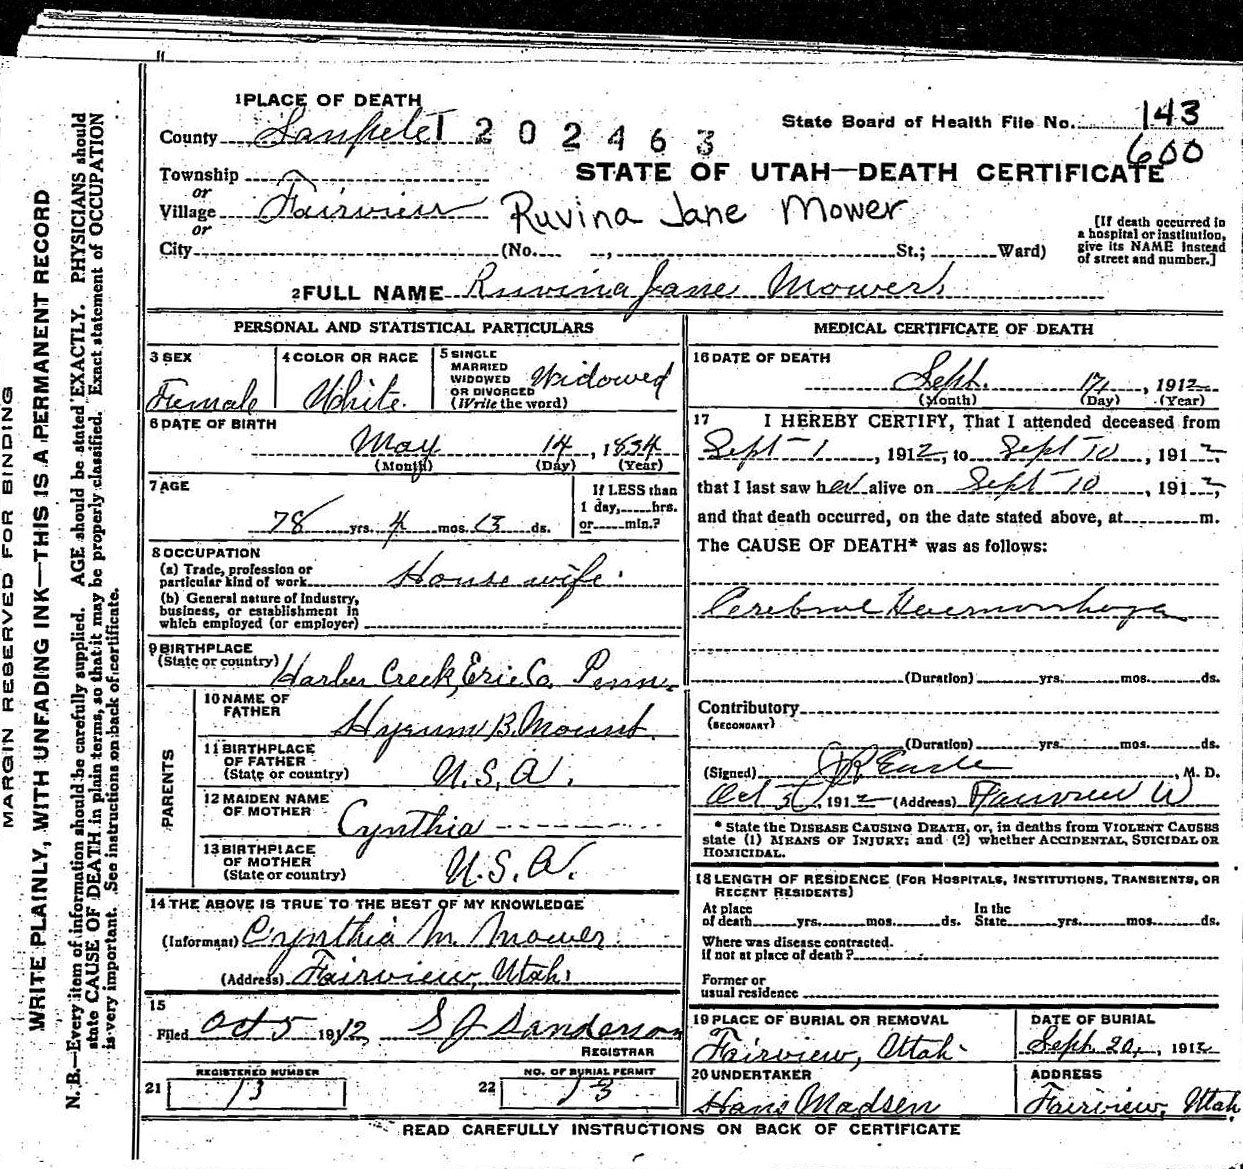 1 PLACE OF DEATH
County Sanpete 1 2 0 2 4 6 3
State Board of Health File No. 143
600
Township
STATE OF UTAH—DEATH CERTIFICATE
or
Village Fairview
Ruvina Jane Mower
or
City (No. , St.; Ward)
[If death occurred in a hospital or institution, give its NAME instead of street and number.]
2 FULL NAME Ruvina Jane Mower
PERSONAL AND STATISTICAL PARTICULARS
3 SEX
Female
4 COLOR OR RACE
White
5 SINGLE MARRIED WIDOWED OR DIVORCED (Write the word)
Widowed
6 DATE OF BIRTH
May 14, 1834
(Month) (Day) (Year)
7 AGE
78 yrs. 4 mos. 13 ds.
If LESS than 1 day, hrs. or min.?
8 OCCUPATION
(a) Trade, profession or particular kind of work House wife.
(b) General nature of Industry, business, or establishment in which employed (or employer)
9 BIRTHPLACE
(State or country) Harber Creek, Erie Co. Penn.
PARENTS
10 NAME OF FATHER
Hyrum B. Mount.
11 BIRTHPLACE OF FATHER (State or country)
U. S. A.
12 MAIDEN NAME OF MOTHER
Cynthia
13 BIRTHPLACE OF MOTHER (State or country)
U. S. A.
14 THE ABOVE IS TRUE TO THE BEST OF MY KNOWLEDGE
(Informant) Cynthia M. Mower
(Address) Fairview, Utah
15
Filed Oct 5 1912 S J Sanderson
REGISTRAR
REGISTERED NUMBER
21 13
NO. OF BURIAL PERMIT
22 13
MEDICAL CERTIFICATE OF DEATH
16 DATE OF DEATH
Sept. 17, 1912
(Month) (Day) (Year)
17 I HEREBY CERTIFY, That I attended deceased from
Sept 1, 1912, to Sept 10, 1912,
that I last saw her alive on Sept 10, 1912,
and that death occurred, on the date stated above, at m.
The CAUSE OF DEATH* was as follows:
Cerebral Haemorrhage
(Duration) yrs. mos. ds.
Contributory
(SECONDARY)
(Duration) yrs. mos. ds.
(Signed) , M. D.
Oct 1912 (Address) Fairview U
* State the DISEASE CAUSING DEATH, or, in deaths from VIOLENT CAUSES
state (1) MEANS OF INJURY; and (2) whether ACCIDENTAL, SUICIDAL OR
HOMICIDAL.
18 LENGTH OF RESIDENCE (FOR HOSPITALS, INSTITUTIONS, TRANSIENTS, OR
RECENT RESIDENTS)
At place of death yrs. mos. ds. In the State yrs. mos. ds.
Where was disease contracted.
if not at place of death?
Former or
usual residence
19 PLACE OF BURIAL OR REMOVAL
Fairview, Utah.
DATE OF BURIAL
Sept 20, 1912
20 UNDERTAKER
Hans Madsen
ADDRESS
Fairview, Utah
READ CAREFULLY INSTRUCTIONS ON BACK OF CERTIFICATE
MARGIN RESERVED FOR BINDING
WRITE PLAINLY, WITH UNFADING INK—THIS IS A PERMANENT RECORD
N. B.—Every item of information should be carefully supplied. AGE should be stated EXACTLY. PHYSICIANS should
state CAUSE OF DEATH in plain terms, so that it may be properly classified. Exact statement of OCCUPATION
is very important. See instructions on back of certificate.